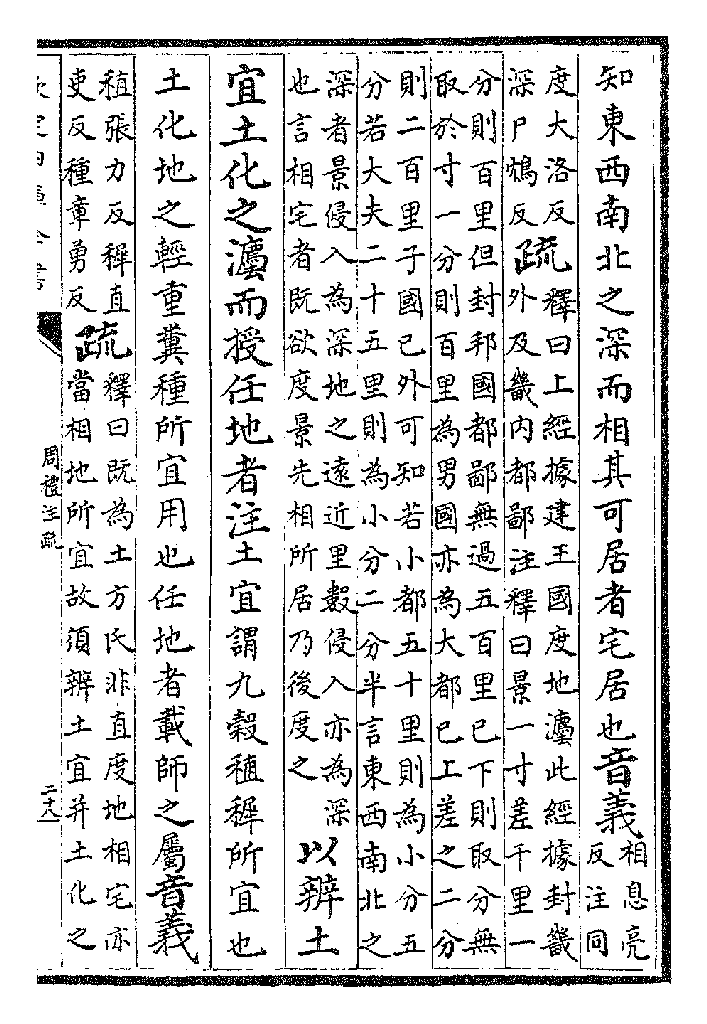 知東西南北之深而相其可居者宅居也音義相息亮
反注同
度大洛反
深尸鴆反疏釋曰上經據建王國度地灋此經據封畿
外及畿內都鄙注釋曰景一寸差千里一
分則百里但封邦國都鄙無過五百里已下則取分無
取於寸一分則百里為男國亦為大都已上差之二分
則二百里子國已外可知若小都五十里則為小分五
分若大夫二十五里則為小分二分半言東西南北之
深者景侵入為深地之遠近里數侵入亦為深
也言相宅者既欲度景先相所居乃後度之
以辨土
宜土化之灋而授任地者注土宜謂九穀稙穉所宜也
土化地之輕重糞種所宜用也任地者載師之屬音義
稙張力反穉直
吏反種章勇反疏釋曰既為土方氏非直度地相宅亦
當相地所宜故須辨土宜并土化之
欽定四庫全書
周禮注疏
二十八